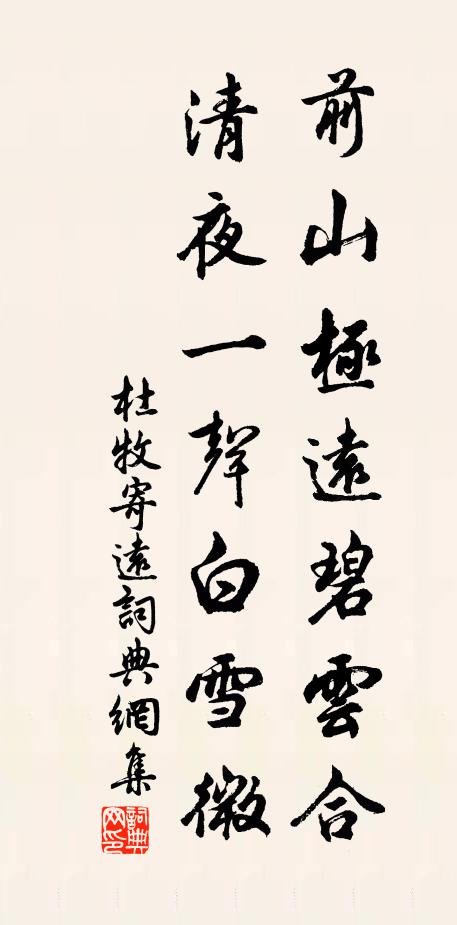 前山極遠碧雲合
清夜一聲白雪微
杜牧寄遠詞典網集
詞典网印